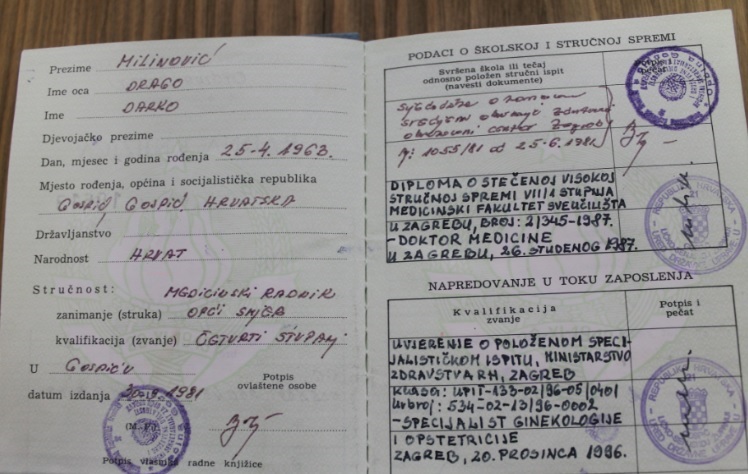 Prezime MILINOVIĆ
Ime oca DRAGO
Ime DARKO
Djevojačko prezime
Dan, mjesec i godina rođenja 25-4. 1963.
Mjesto rođenja, općina i socijalistička republika
GOSPIĆ GOSPIĆ HRVATSKA
Državljanstvo
Narodnost HRVAT
Stručnost: MEDICINSKI RADNIK
zanimanje (struka) OPĆI SMJER
kvalifikacija (zvanje) ČETVRTI STUPANJ
U GOSPIĆU
Potpis
ovlaštene osobe
datum izdanja 1981
(M.P.)
Potpis vlasnika radne knjižice
PODACI O ŠKOLSKOJ I STRUČNOJ SPREMI
Svršena škola ili tečaj
odnosno položen stručni ispit
(navesti dokumente)
Potpis i
pečat
Svjedodžba o
srednjem obrazovanju
obrazovni centar Zagreb
1055/81 od 25.6.1981.
DIPLOMA O STEČENOJ VISOKOJ
STRUČNOJ SPREMI VII/1 STUPNJA
MEDICINSKI FAKULTET SVEUČILIŠTA
U ZAGREBU, BROJ: 21345-1987.
- DOKTOR MEDICINE
U ZAGREBU, 26. STUDENOG 1987.
REPUBLIKA HRVATSKA
NAPREDOVANJE U TOKU ZAPOSLENJA
Kvalifikacija
zvanje
Potpis i
pečat
UVJERENJE O POLOŽENOM SPECI-
JALISTIČKOM ISPITU, MINISTARSTVO
ZDRAVSTVA RH, ZAGREB
Klasa: UPIT-133-02/96-05/0401
Urbroj: 534-02-13/96-0002
- SPECIJALIST GINEKOLOGIJE
I OPSTETRICIJE
ZAGREB, 20. PROSINCA 1996.
REPUBLIKA HRVATSKA